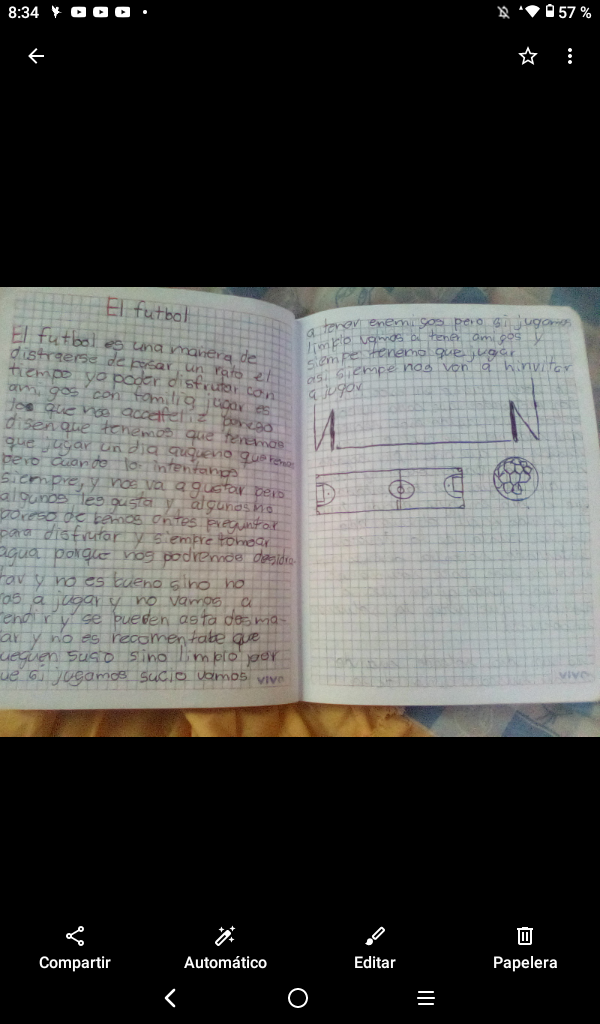 8:34
57 %
El futbol
El futbol es una manera de
distraerse de pasar, un rato el
tiempo yo poder disfrutar con
amigos con familia jugar es
que nos
disen que tenemos que tenemos
que jugar un dia queremos
pero cuando lo intentamos
siempre, y nos va a gustar pero
algunos les gusta y algunosno
poreso de bemos antes preguntar
para disfrutar y siempre tomoar
agua porque nos podremos desidra
tar y no es bueno sino no
os a jugar y no vamos a
endir y se pueden asta desma-
ar y no es recomentabe que
ueguen sucio sino limpio por
ue si jugamos sucio vamos
vivo
a tener enemigos pero si jugamos
limpio vamos a tener amigos y
siempe tenemo que jugar
asi siempe nos van a hinvitar
a jugar
vivo
Compartir
Automático
Editar
Papelera